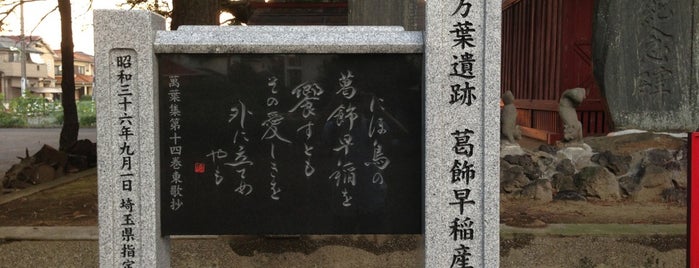 万葉遺跡 葛飾早稲産
にほ鳥の
葛飾早稲を
饗すとも
その愛しきを
外に立てめ
やも
萬葉集第十四巻東歌抄
昭和三十六年九月一日 埼玉県指定